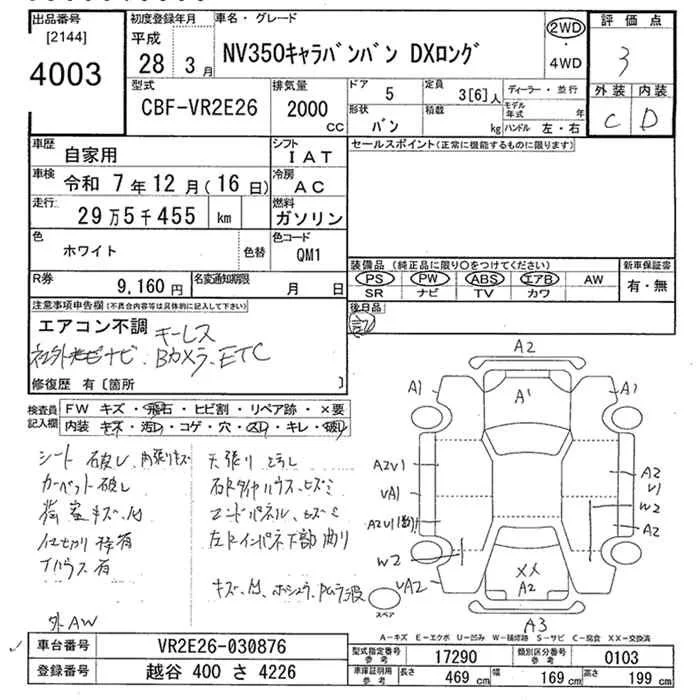 出品番号 初度登録年月 車名・グレード 評価点
[2144] 平成
4003 28年 3月 NV350キャラバンバン DXロング 2WD・4WD 3
型式 排気量 ドア 定員 ディーラー・並行 外装 内装
CBF-VR2E26 2000cc 5 3[6]人 モデル年式 年 C D
形状 バン 積載 kg ハンドル 左・右
車歴 自家用 シフト IAT セールスポイント(正常に機能するものに限ります)
車検 令和 7年12月(16日) 冷房 AC
走行 29万5千455 km 燃料 ガソリン
色 ホワイト 色替 色コード QM1
装備品 (純正品に限り○をつけてください) 新車保証書
R券 9,160円 名変通知期限 月 日 PS PW ABS エアB AW 有・無
SR ナビ TV カワ
注意事項申告欄(不具合内容等は具体的に記入して下さい) 後日品
エアコン不調 キーレス 記
社外ナビ Bカメラ、ETC
修復歴 有〔箇所 〕
検査員記入欄 FW キズ・飛石・ヒビ割・リペア跡・×要
内装 キズ・汚れ・コゲ・穴・スレ・キレ・破れ
シート破レ、内張りキズ 天張り ヨゴレ
カーペット破レ 右Rタイヤハウス、ヒズミ
荷室キズ、M エンドパネル、ヒズミ
仕切り枠有 左Rインパネ下部曲り
Tハウス有
キズ、M
外AW
A2
A1 A' A1
A2V1 A2
V1
VA1 W2
A2
W2
VA2 XX
A2
スペア
A3
A-キズ E-エクボ U-凹み W-補修跡 S-サビ C-腐食 XX-交換済
車台番号 VR2E26-030876 型式指定番号 参考 17290 類別区分番号 参考 0103
登録番号 越谷 400 さ 4226 車庫証明用 参考 長さ 469cm 幅 169cm 高さ 199cm